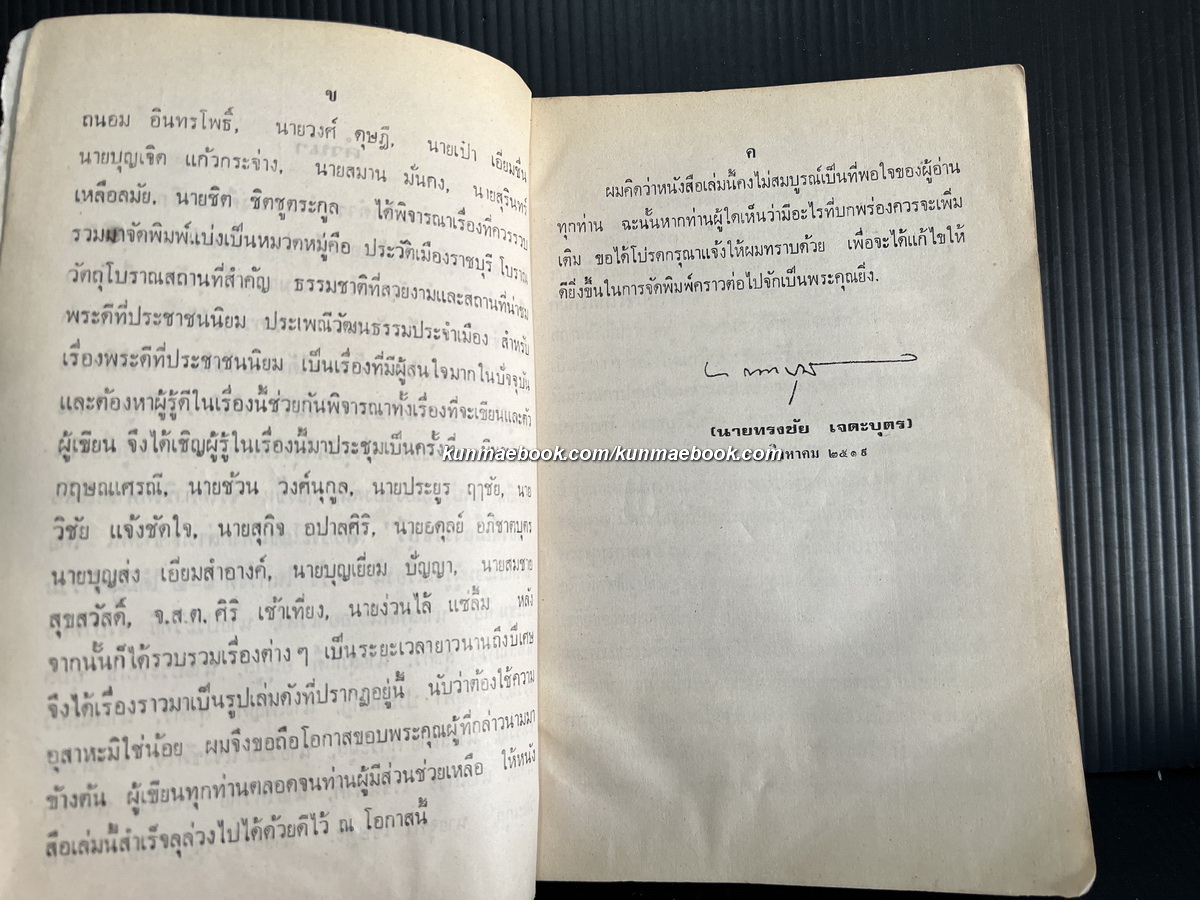 ข
ถนอม อินทรโพธิ์, นายวงศ์ ดุษฎี, นายเป้า เอี่ยมชื่น
นายบุญเจิด แก้วกระจ่าง, นายสมาน มั่นคง, นายสุรินทร์
เหลือลมัย, นายชิต ชิตชูตระกูล ได้พิจารณาเรื่องที่ควรรวบ
รวมมาจัดพิมพ์แบ่งเป็นหมวดหมู่คือ ประวัติเมืองราชบุรี โบราณ
วัตถุโบราณสถานที่สำคัญ ธรรมชาติที่สวยงามและสถานที่น่าชม
พระดีที่ประชาชนนิยม ประเพณีวัฒนธรรมประจำเมือง สำหรับ
เรื่องพระดีที่ประชาชนนิยม เป็นเรื่องที่มีผู้สนใจมากในปัจจุบัน
และต้องหาผู้รู้ดีในเรื่องนี้ช่วยกันพิจารณาทั้งเรื่องที่จะเขียนและตัว
ผู้เขียน จึงได้เชิญผู้รู้ในเรื่องนี้มาประชุมเป็นครั้งที่
กฤษณเศรณี, นายช้วน วงศ์นุกูล, นายประยูร ฤาชัย, นาย
วิชัย แจ้งชัดใจ, นายสุกิจ อปาลศิริ, นายอดุลย์ อภิชาตบุตร
นายบุญส่ง เอี่ยมสำอางค์, นายบุญเยี่ยม ปัญญา, นายสมชาย
สุขสวัสดิ์, จ.ส.ต. ศิริ เช้าเที่ยง, นายง่วนไล้ แซ่ลิ้ม หลัง
จากนั้นก็ได้รวบรวมเรื่องต่าง ๆ เป็นระยะเวลายาวนานถึงปีเศษ
จึงได้เรื่องราวมาเป็นรูปเล่มดังที่ปรากฏอยู่นี้ นับว่าต้องใช้ความ
อุสาหะมิใช่น้อย ผมจึงขอถือโอกาสขอบพระคุณผู้ที่กล่าวนามมา
ข้างต้น ผู้เขียนทุกท่านตลอดจนท่านผู้มีส่วนช่วยเหลือ ให้หนัง
สือเล่มนี้สำเร็จลุล่วงไปได้ด้วยดีไว้ ณ โอกาสนี้
ค
ผมคิดว่าหนังสือเล่มนี้คงไม่สมบูรณ์เป็นที่พอใจของผู้อ่าน
ทุกท่าน ฉะนั้นหากท่านผู้ใดเห็นว่ามีอะไรที่บกพร่องควรจะเพิ่ม
เติม ขอได้โปรดกรุณาแจ้งให้ผมทราบด้วย เพื่อจะได้แก้ไขให้
ดียิ่งขึ้นในการจัดพิมพ์คราวต่อไปจักเป็นพระคุณยิ่ง.
(นายทรงชัย เจตะบุตร)
สิงหาคม ๒๕๑๙
kunmaebook.com/kunmaebook.com